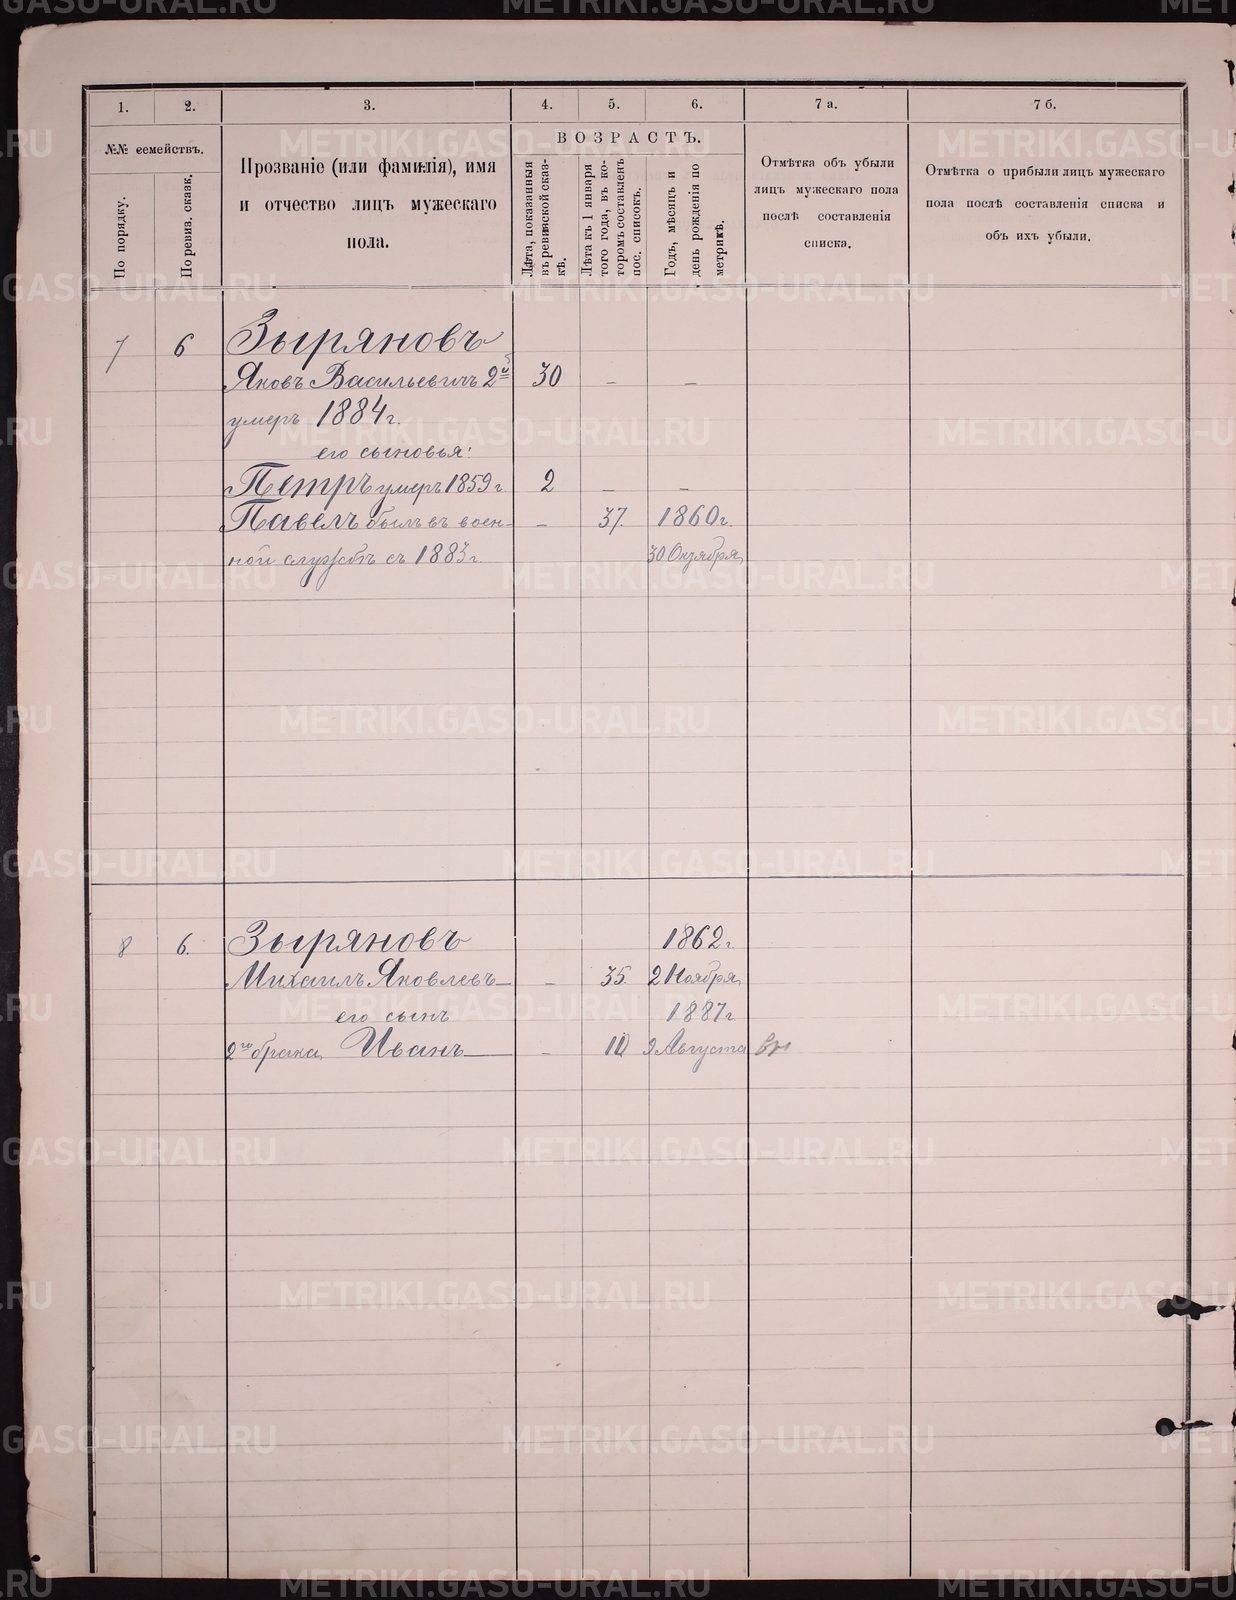 1. 2. 3. 4. 5. 6. 7 а. 7 б.
№№ семействъ.
По порядку.
По ревиз. сказк.
Прозваніе (или фамилія), имя
и отчество лицъ мужескаго
пола.
ВОЗРАСТЪ.
Лѣта, показанныя
въ ревизской сказ-
кѣ.
Лѣта къ 1 января
того года, въ ко-
торомъ составленъ
пос. списокъ.
Годъ, мѣсяцъ и
день рожденія по
метрикѣ.
Отмѣтка объ убыли
лицъ мужескаго пола
послѣ составленія
списка.
Отмѣтка о прибыли лицъ мужескаго
пола послѣ составленія списка и
объ ихъ убыли.
7 6 Зыряновъ
Яковъ Васильевичъ 2й 30 – –
умеръ 1884 г.
его сыновья:
Петръ умеръ 1859 г. 2 – –
Павелъ былъ въ воен- – 37. 1860 г.
ной службѣ съ 1883 г. 30 Октября
8 6. Зыряновъ 1862 г.
Михаилъ Яковлевъ – 35 2 Ноября
его сынъ 1887 г.
2го брака, Иванъ – 10 9 Августа
METRIKI.GASO-URAL.RU